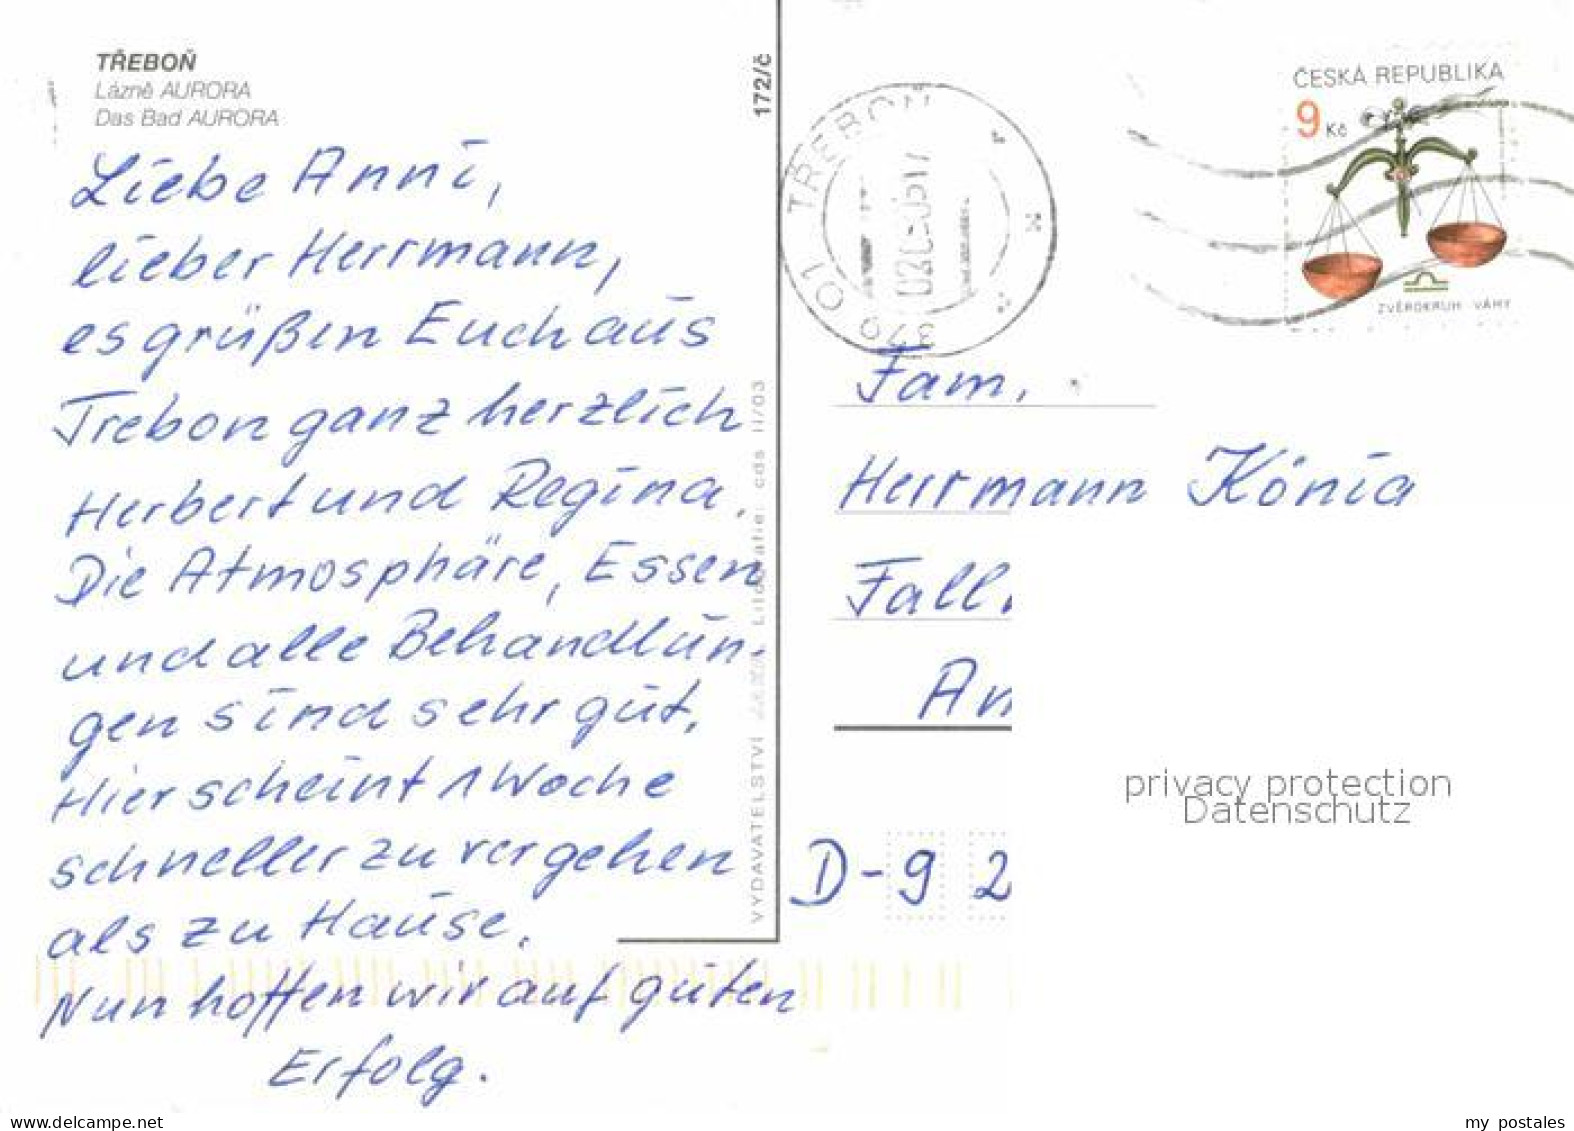 TŘEBOŇ
Lázně AURORA
Das Bad AURORA
Liebe Anni,
lieber Herrmann,
es grüßen Euch aus
Trebon ganz herzlich
Herbert und Regina.
Die Atmosphäre, Essen
und alle Behandlun-
gen sind sehr gut.
Hier scheint 1 Woche
schneller zu vergehen
als zu Hause.
Nun hoffen wir auf guten
Erfolg.
172/č
VYDAVATELSTVÍ
Litografie: cds II/03
379 01 TŘEBOŇ
ČESKÁ REPUBLIKA
9 Kč
ZVĚROKRUH VÁHY
Fam.
Herrmann König
Fall
An
D-92
privacy protection
Datenschutz
www.delcampe.net
my_postales